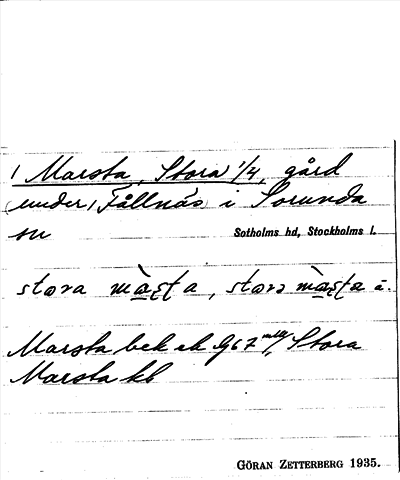 Marsta, Stora 1/4, gård
(under) Fållnäs i Sorunda
sn Sotholms hd, Stockholms l.
stora màsta, stora màsta ä.
Marsta bek ek G67 Stora
Marsta kb
GÖRAN ZETTERBERG 1935.